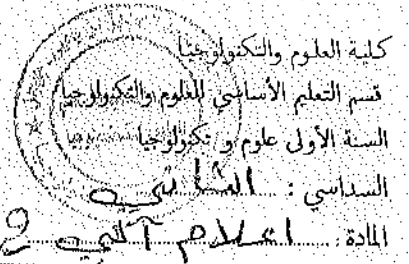 كلية العلوم والتكنولوجيا
قسم التعليم الأساسي للعلوم والتكنولوجيا
السنة الأولى علوم و تكنولوجيا
السداسي : الثاني
المادة : اعلام آلي 2